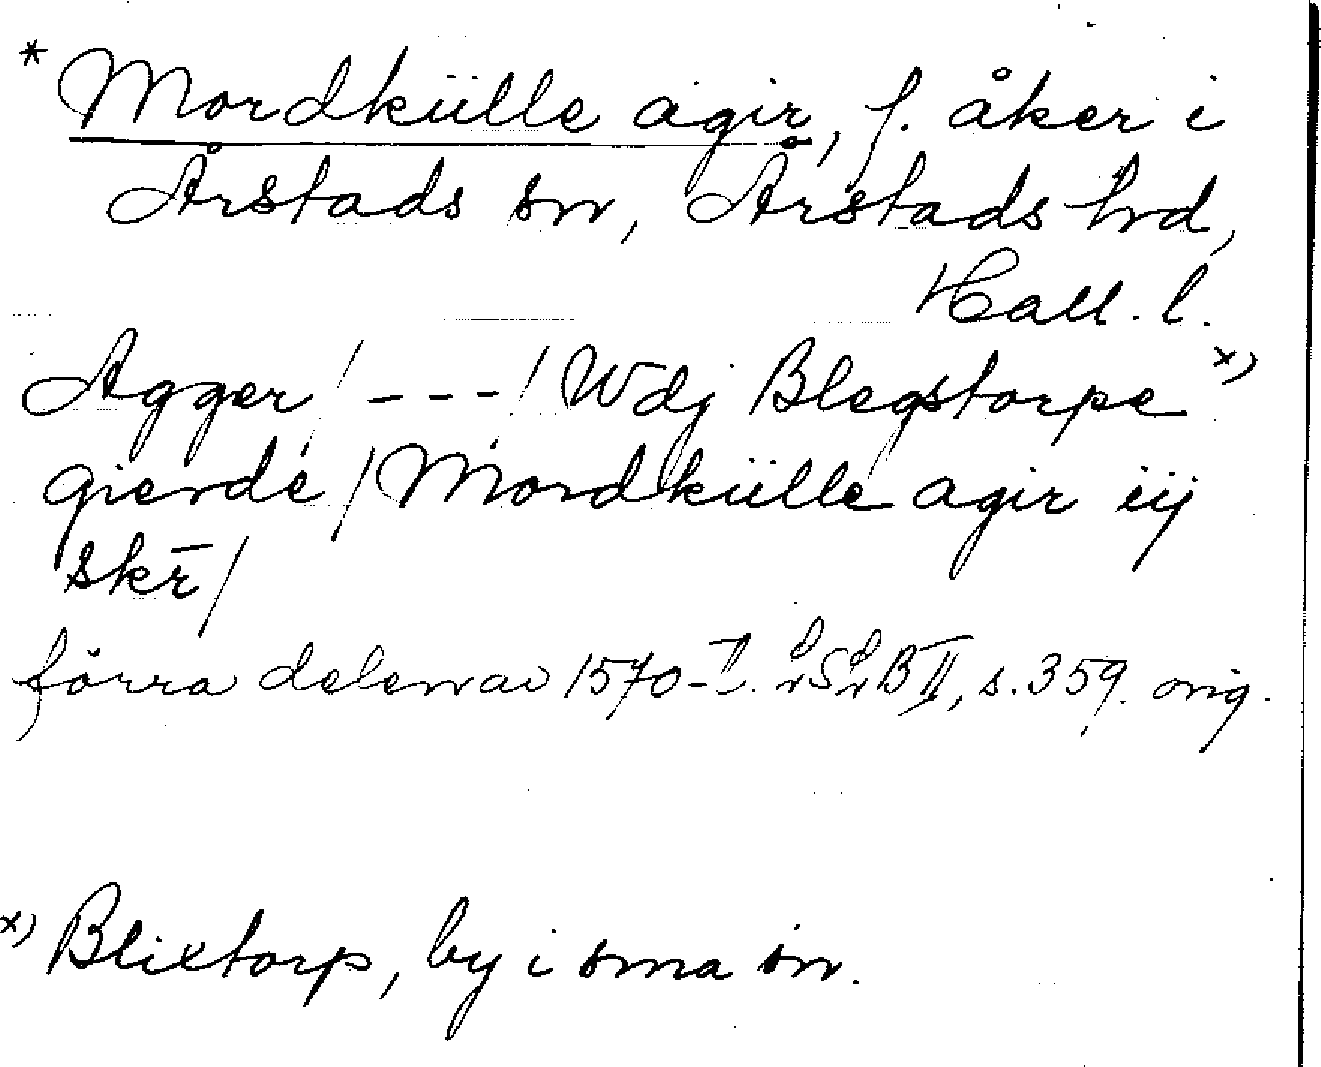 * Mordkülle agir, f. åker i
Årstads sn, Årstads hrd,
Hall. l.
Agger / - - - / Wdj Blegstorpe x)
gierde / Mordkülle agir iij
skr̄ /
förra delen av 1570-t. LSLB II, s. 359. orig.
x) Blixtorp, by i sma sn.